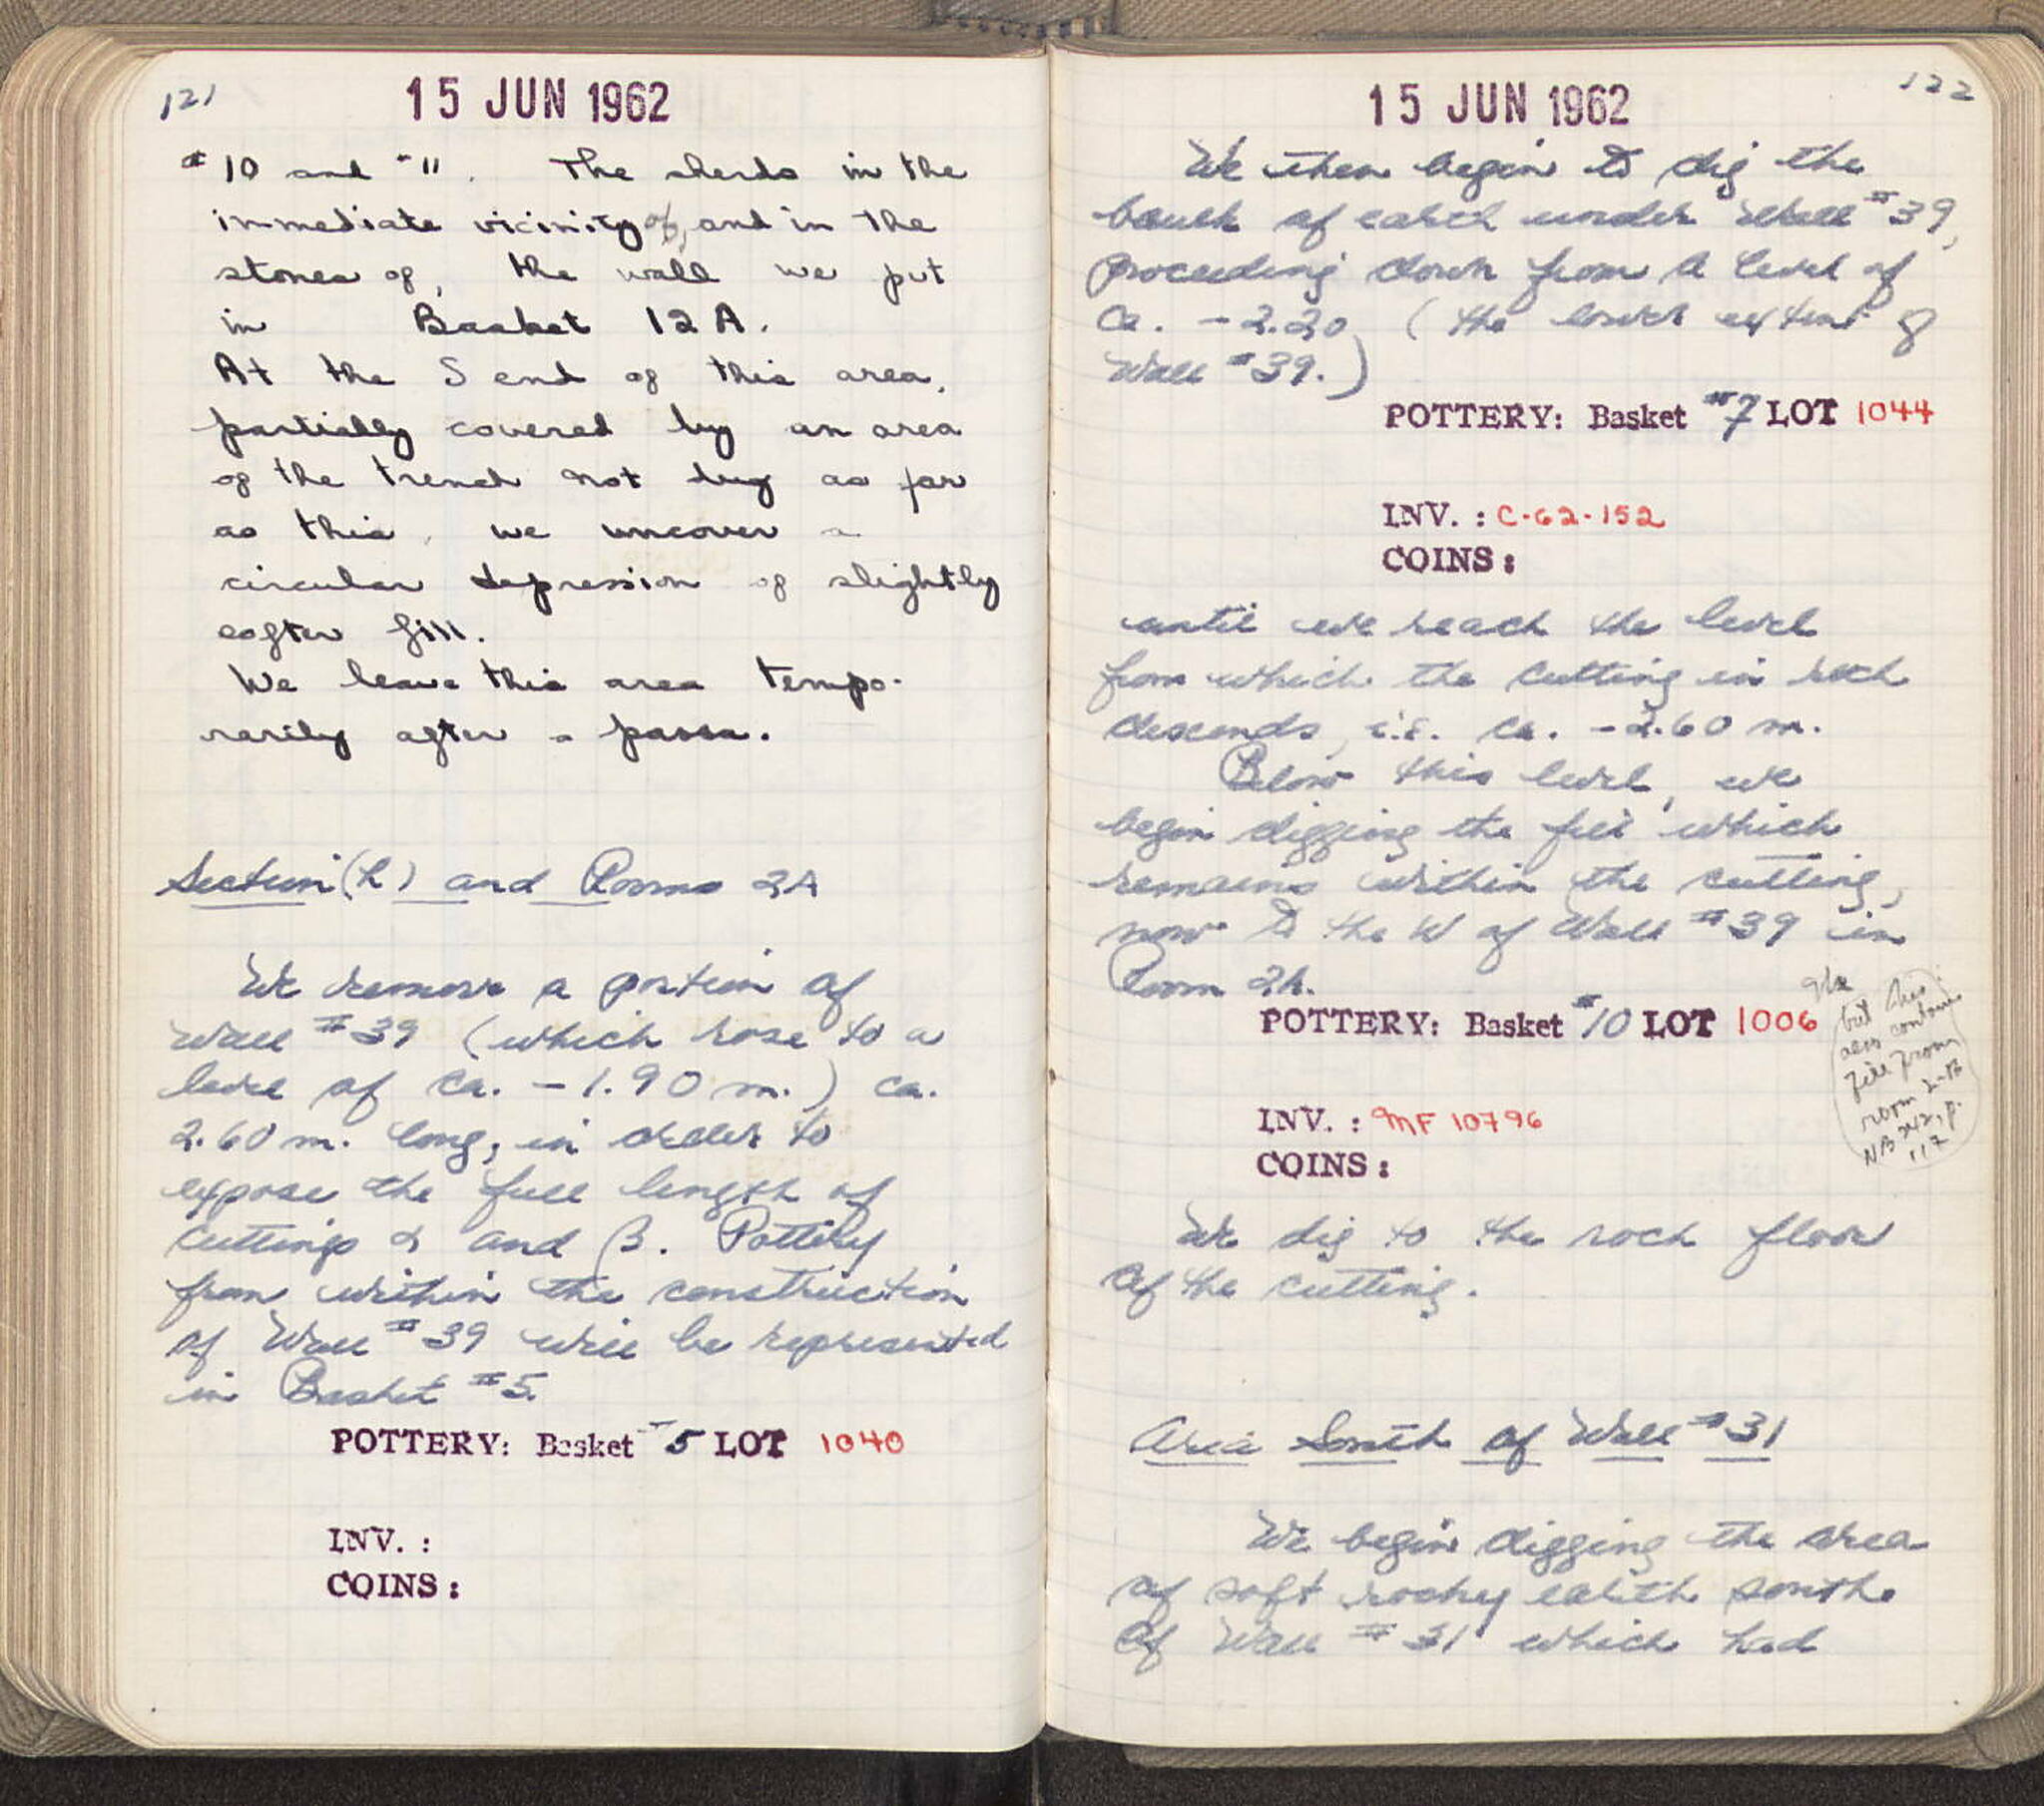 121
15 JUN 1962
#10 and #11. The sherds in the
immediate vicinity of, and in the
stones of, the wall we put
in Basket 12A.
At the S end of this area,
partially covered by an area
of the trench not dug as far
as this, we uncover a
circular depression of slightly
softer fill.
We leave this area tempo-
rarily after a passa.
Section (h) and Rooms 2A
We remove a portion of
Wall #39 (which rose to a
level of ca. -1.90 m.) ca.
2.60 m. long, in order to
expose the full length of
cuttings α and β. Pottery
from within the construction
of Wall #39 will be represented
in Basket #5.
POTTERY: Basket #5 LOT 1040
INV. :
COINS:
122
15 JUN 1962
We then begin to dig the
baulk of earth under Wall #39,
proceeding down from a level of
ca. -2.20 (the lower extent of
Wall #39.)
POTTERY: Basket #7 LOT 1044
INV. : C-62-152
COINS:
until we reach the level
from which the cutting in rock
descends, i.e. ca. -2.60 m.
Below this level, we
begin digging the fill which
remains within the cutting,
now to the W of Wall #39 in
Room 2A.
POTTERY: Basket #10 LOT 1006
but this
also contains
fill from
room 2-B
NB 242, p.
117
INV. : MF 10796
COINS:
We dig to the rock floor
of the cutting.
Area South of Wall #31
We begin digging the area
of soft rocky earth south
of Wall #31 which had